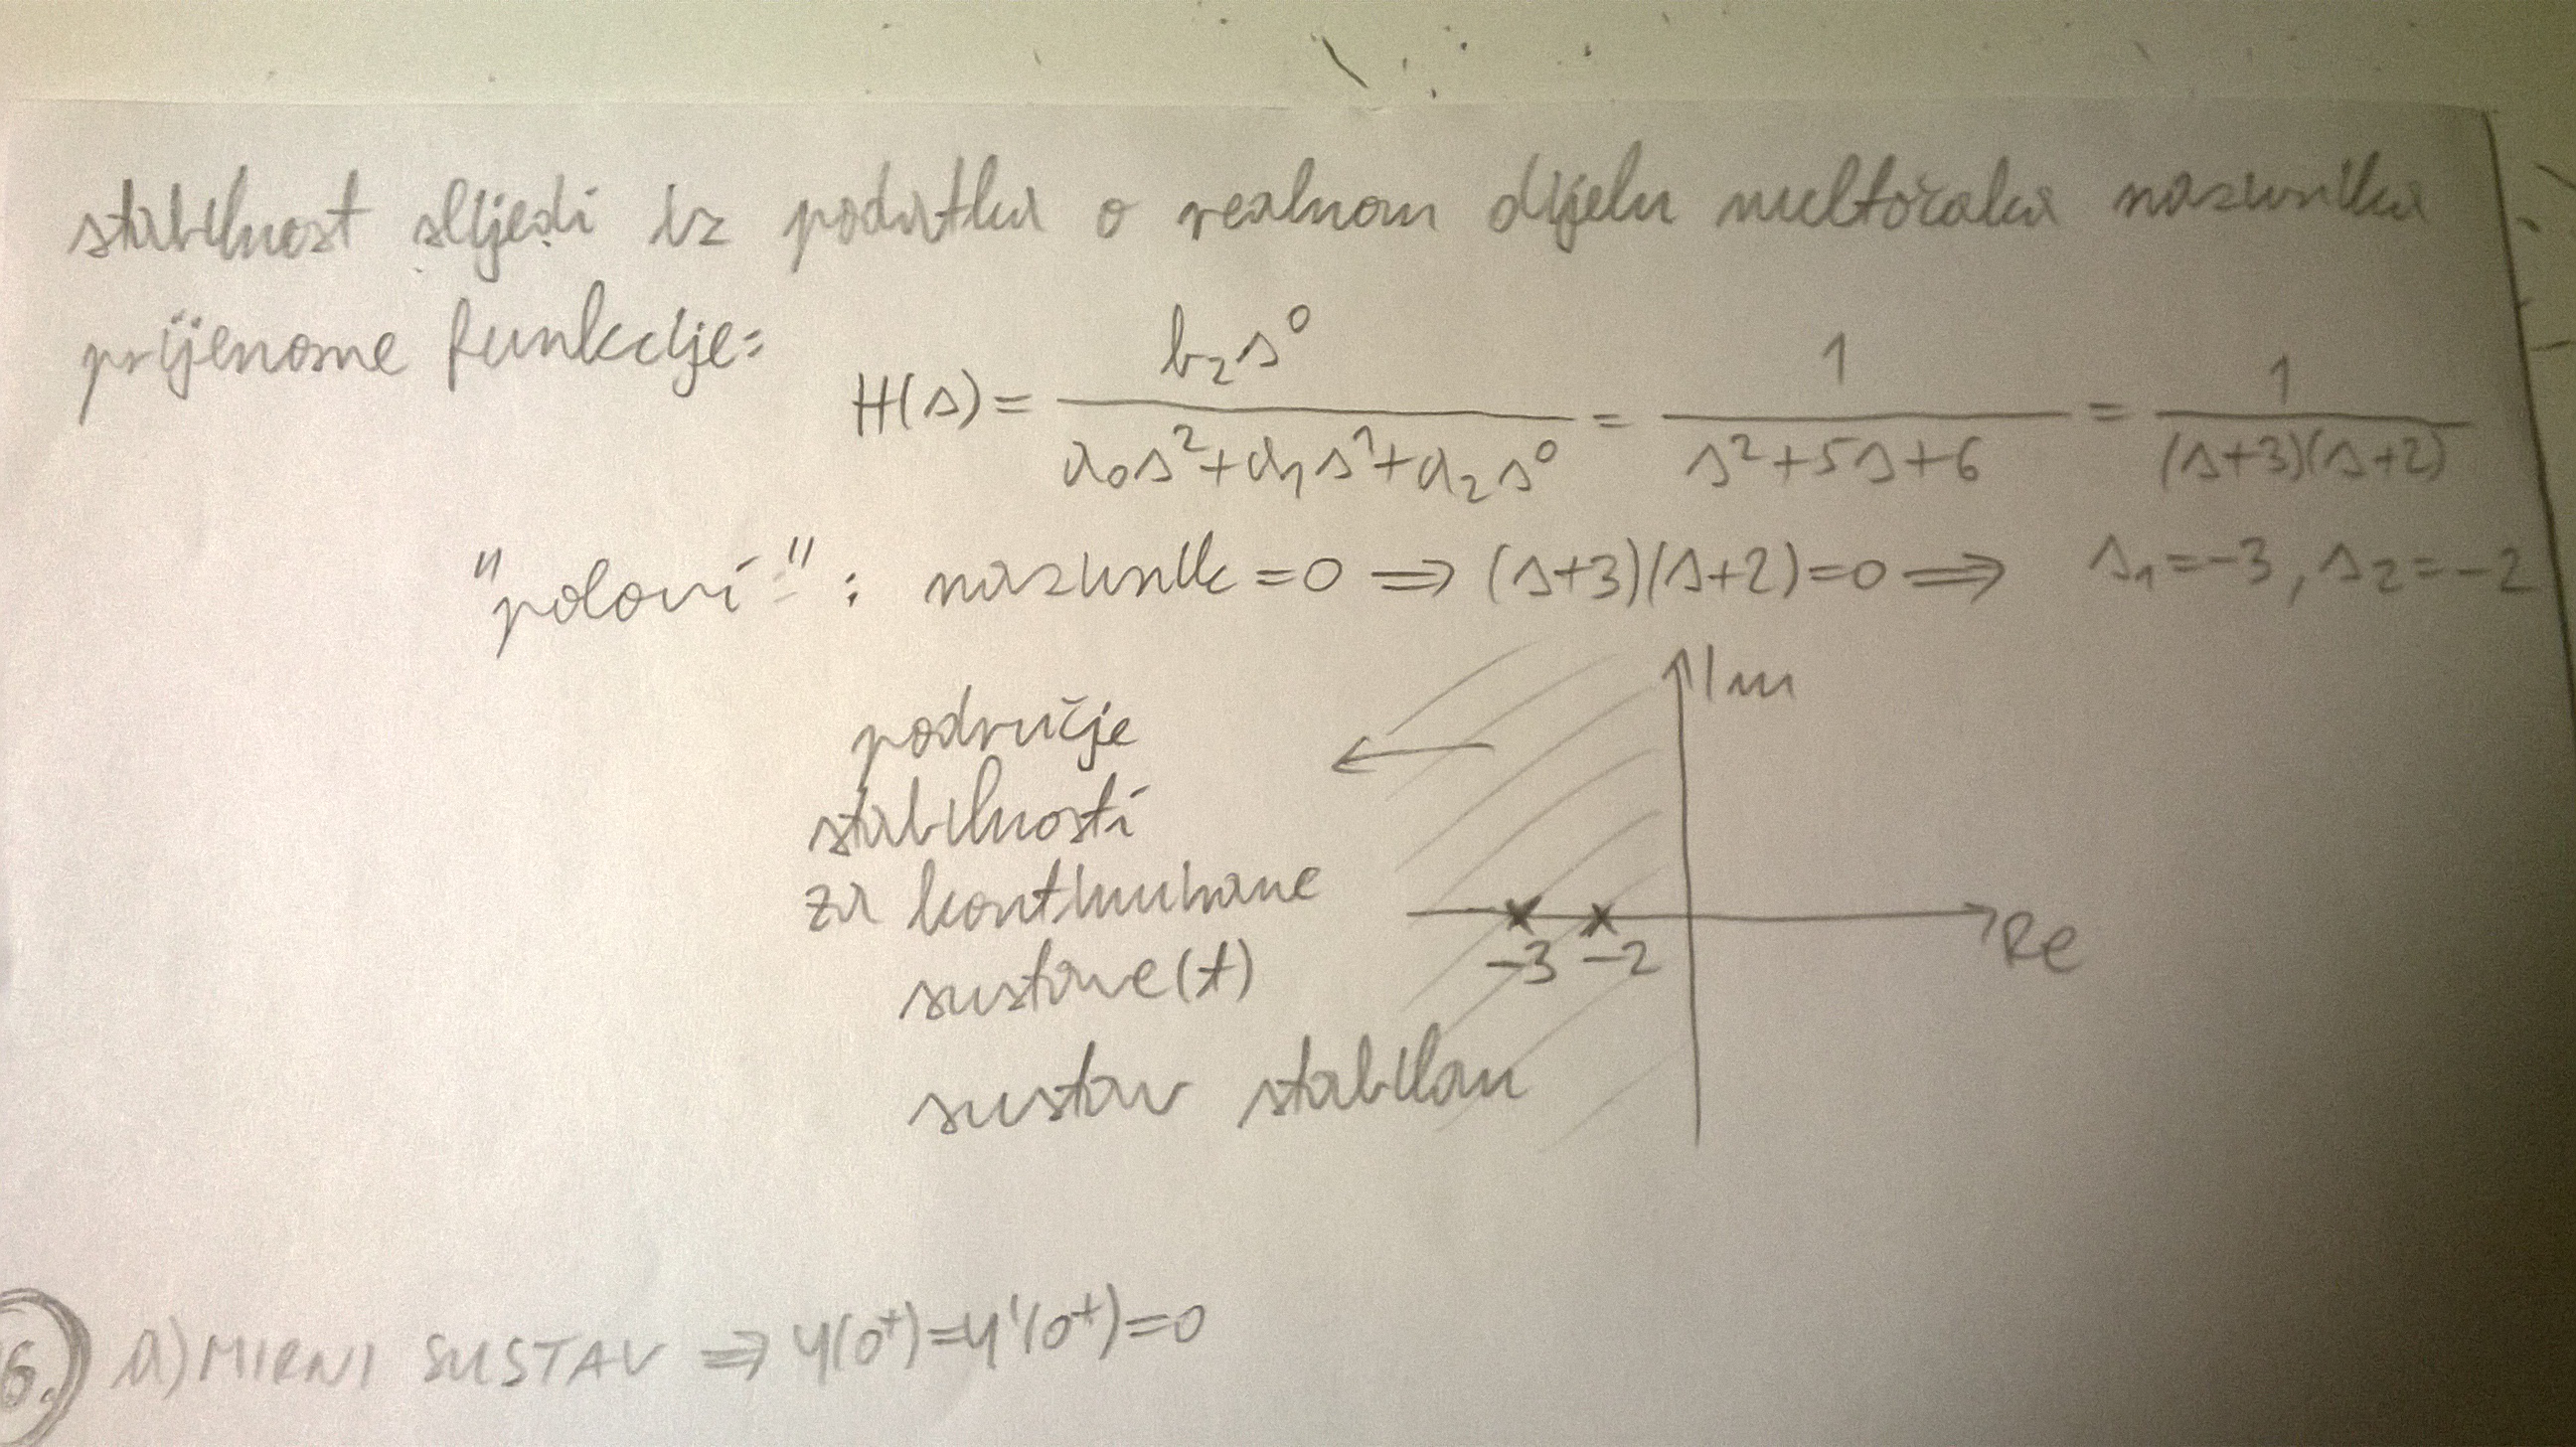 stabilnost slijedi iz podatka o realnom dijelu nultočaka nazivnika
prijenosne funkcije:
H(s) = b₂s⁰ / (a₀s²+a₁s¹+a₂s⁰) = 1 / (s²+5s+6) = 1 / ((s+3)(s+2))
"polovi" : nazivnik = 0 ⇒ (s+3)(s+2)=0 ⇒ s₁=-3, s₂=-2
Im
područje
stabilnosti
za kontinuirane
sustave(t)
-3 -2
Re
sustav stabilan
6. a) MIRNI SUSTAV ⇒ y(0⁺)=y'(0⁺)=0